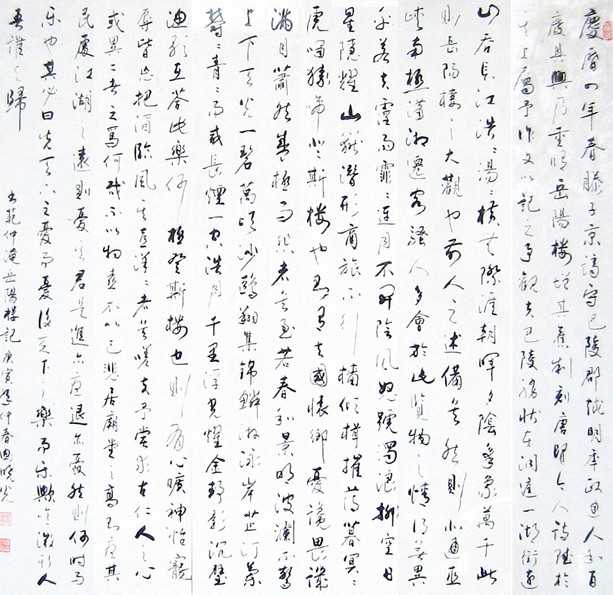 慶曆四年春滕子京謫守巴陵郡越明年政通人和百
廢具興乃重修岳陽樓增其舊制刻唐賢今人詩賦於
其上屬予作文以記之予觀夫巴陵勝狀在洞庭一湖銜遠
山吞長江浩浩湯湯橫無際涯朝暉夕陰氣象萬千此
則岳陽樓之大觀也前人之述備矣然則北通巫
峽南極瀟湘遷客騷人多會於此覽物之情得無異
乎若夫霪雨霏霏連月不開陰風怒號濁浪排空日
星隱耀山嶽潛形商旅不行檣傾楫摧薄暮冥冥
虎嘯猿啼登斯樓也則有去國懷鄉憂讒畏譏
滿目蕭然感極而悲者矣至若春和景明波瀾不驚
上下天光一碧萬頃沙鷗翔集錦鱗游泳岸芷汀蘭
鬱鬱青青而或長煙一空皓月千里浮光耀金靜影沉璧
漁歌互答此樂何極登斯樓也則有心曠神怡寵
辱皆忘把酒臨風其喜洋洋者矣嗟夫予嘗求古仁人之心
或異二者之為何哉不以物喜不以己悲居廟堂之高則憂其
民處江湖之遠則憂其君是進亦憂退亦憂然則何時而
樂也其必曰先天下之憂而憂後天下之樂而樂歟噫微斯人
吾誰與歸
范仲淹岳陽樓記庚寅年仲春